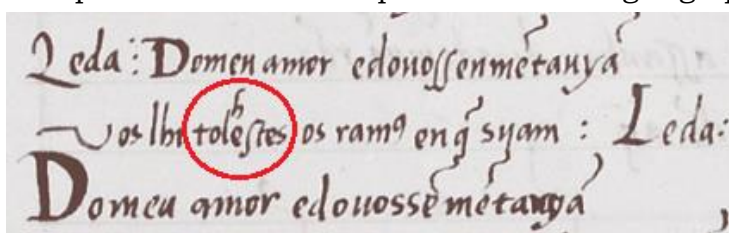 Leda: Domeu amor edouossenmētauyā
Vos lhi tolʰestes os ramꝰ enq̄ syam : Leda:
Domeu amor edouossē mētauyā